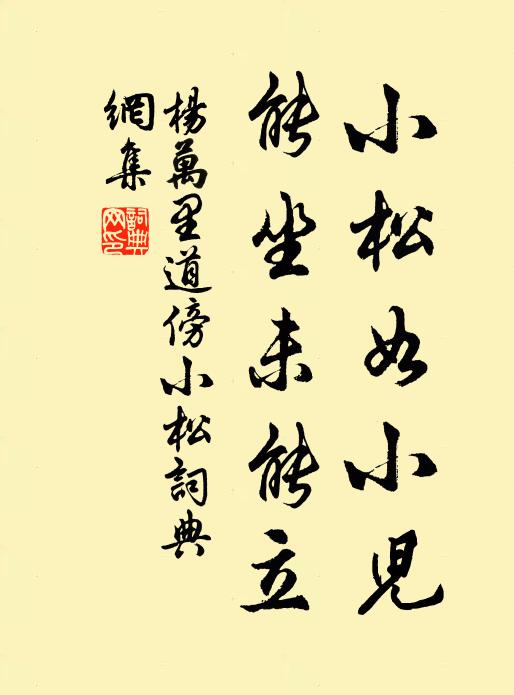 小松如小兒
能坐未能立
楊萬里道傍小松詞典
網集
詞典
网印